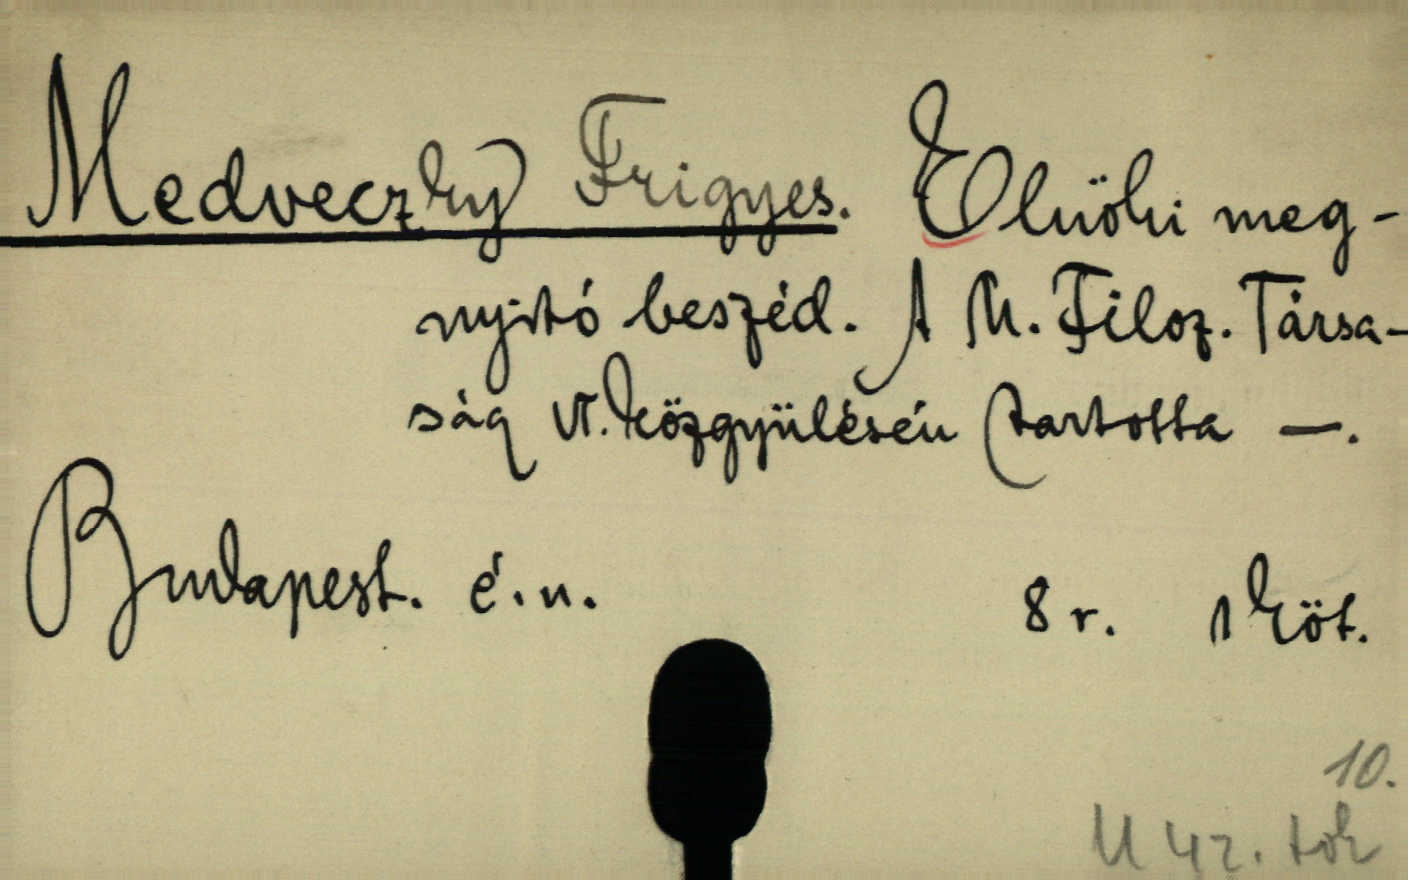 Medveczky Frigyes. Elnöki meg-
nyitó beszéd. A M. Filoz. Társa-
ság VI. közgyülésén tartotta —.
Budapest. é. n. 8 r. 1 köt.
10.
U 42. tok